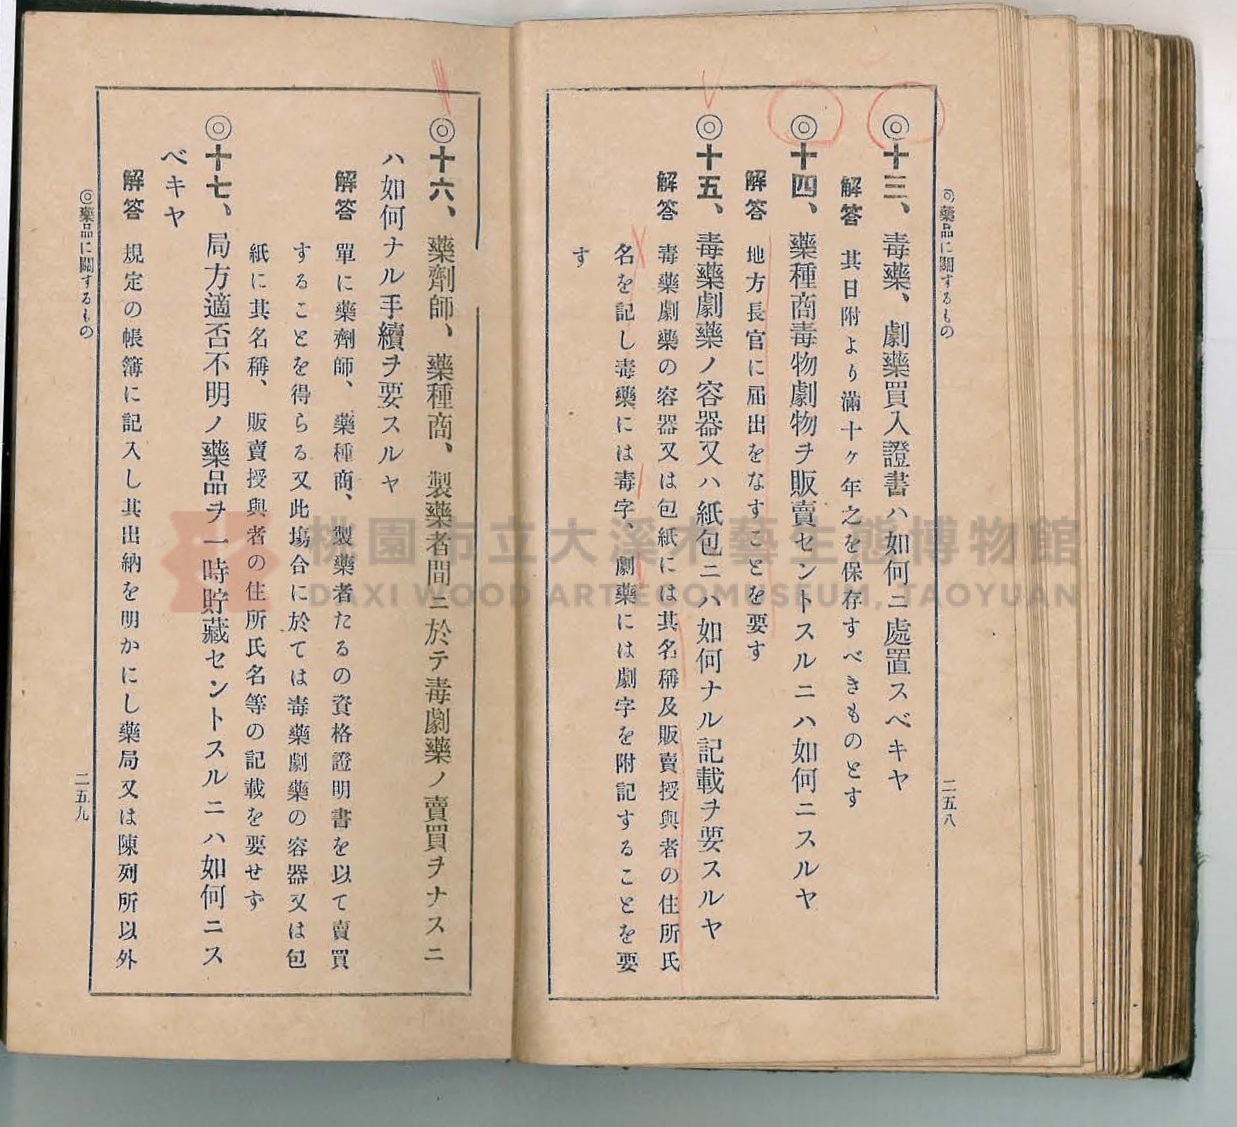 ◎藥品に關するもの
二五八
◎十三、毒藥、劇藥買入證書ハ如何ニ處置スベキヤ
解答 其日附より滿十ヶ年之を保存すべきものとす
◎十四、藥種商毒物劇物ヲ販賣セントスルニハ如何ニスルヤ
解答 地方長官に屆出をなすことを要す
◎十五、毒藥劇藥ノ容器又ハ紙包ニハ如何ナル記載ヲ要スルヤ
解答 毒藥劇藥の容器又は包紙には其名稱及販賣授與者の住所氏
名を記し毒藥には毒字、劇藥には劇字を附記することを要
す
◎十六、藥劑師、藥種商、製藥者間ニ於テ毒劇藥ノ賣買ヲナスニ
ハ如何ナル手續ヲ要スルヤ
解答 單に藥劑師、藥種商、製藥者たるの資格證明書を以て賣買
することを得らる又此塲合に於ては毒藥劇藥の容器又は包
紙に其名稱、販賣授與者の住所氏名等の記載を要せず
◎十七、局方適否不明ノ藥品ヲ一時貯藏セントスルニハ如何ニス
ベキヤ
解答 規定の帳簿に記入し其出納を明かにし藥局又は陳列所以外
◎藥品に關するもの
二五九
桃園市立大溪木藝生態博物館
DAXI WOOD ART ECOMUSEUM, TAOYUAN